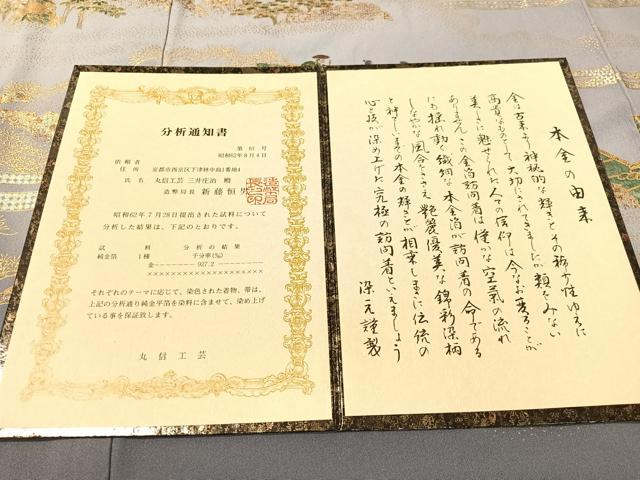 分析通知書
第 61 号
昭和62年8月4日
依頼者
住所 京都市西京区下津林中島1番地4
氏名 丸信工芸 三井庄治 殿
造幣局長 新藤恒男
昭和62年7月28日提出された試料について
分析した結果は、下記のとおりです。
試料 分析の結果
純金箔 1種 千分率(‰)
金 ――― 927.2 ―――
×××××××××××××××××××××
それぞれのテーマに応じて、染色された着物、帯は、
上記の分析通り純金平箔を染料に含ませて、染め上げ
ている事を保証致します。
丸信工芸
本金の由来
金は古来より神秘的な輝きとその稀少性ゆえに
高貴なものとして大切にされてきましたが類をみない
美しさに魅せられた人々の信仰は今なお変ることが
ありません この金箔訪問着は僅かな空気の流れ
にも揺れ動く繊細な本金箔が訪問着の命である
しなやかな風合をささえ 艶麗優美な錦彩染柄
と神さびた本金の輝きが相乗しまさに伝統の
心と技が染め上げた究極の訪問着といえましょう
染元謹製